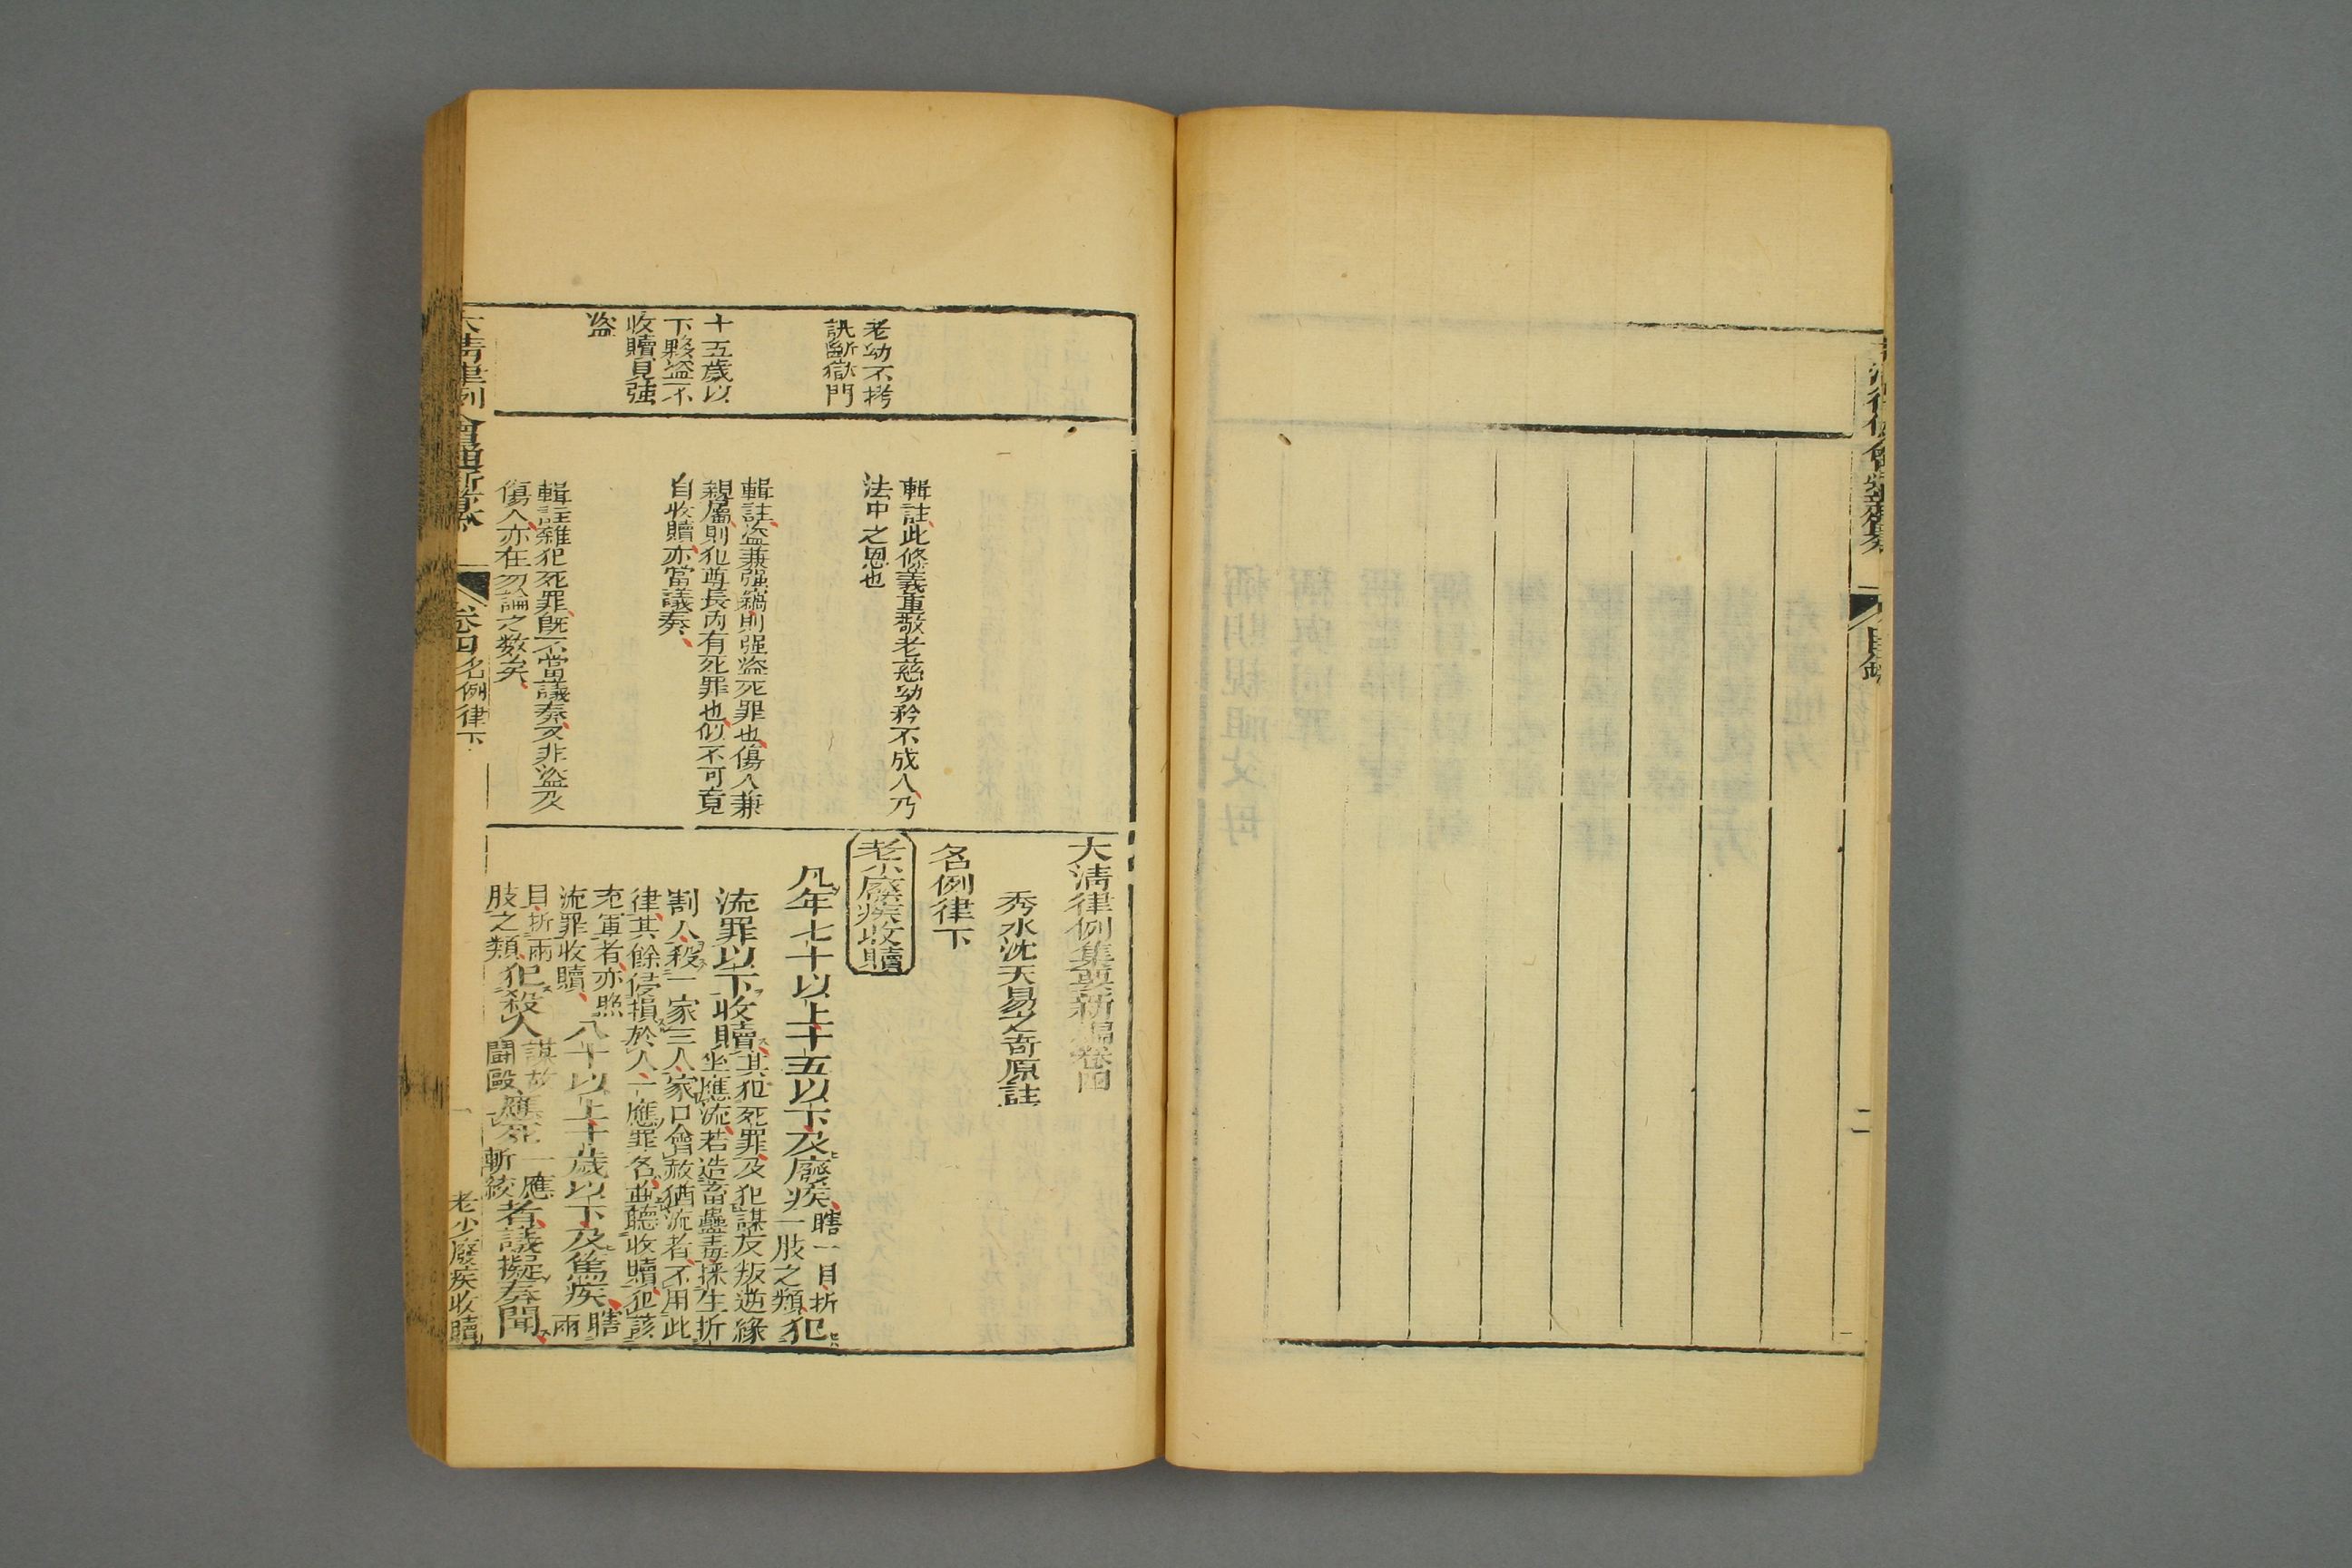 目錄
二
大清律例集要新編卷四
秀水沈天易之奇原註
名例律下
老少廢疾收贖
凡年七十以上十五以下及廢疾瞎一目折一肢之類犯
流罪以下收贖其犯死罪及犯謀反叛逆緣坐應流若造畜蠱毒採生折
割人殺一家三人家口會赦猶流者不用此
律其餘侵損於人一應罪名並聽收贖犯該
充軍者亦照流罪收贖八十以上十歲以下及篤疾瞎兩
目折兩肢之類犯殺人謀故鬭毆應死一應斬絞者議擬奏聞
輯註此條義重敬老慈幼矜不成人乃
法中之恩也
輯註盜兼强竊則强盜死罪也傷人兼
親屬則犯尊長內有死罪也似不可竟
自收贖亦當議奏
輯註雜犯死罪既不當議奏又非盜及
傷人亦在勿論之数矣
老幼不拷
訊斷獄門
十五歲以
下夥盜不
收贖見强
盜
大清律例會通新纂
卷四名例律下
一
老少廢疾收贖